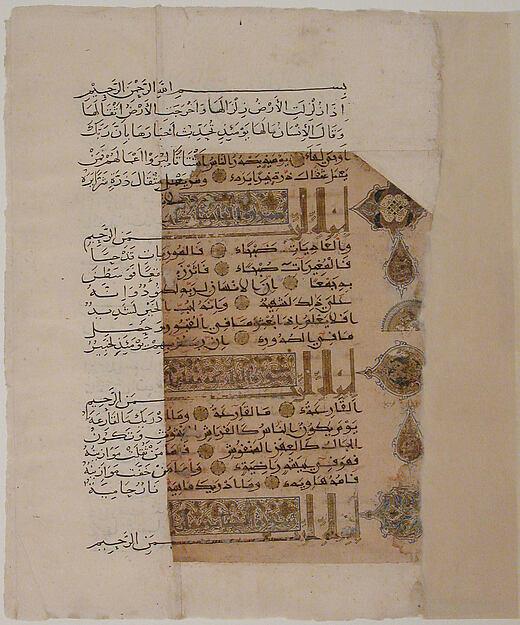 بسم الله الرحمن الرحيم
اذا زلزلت الأرض زلزالها واخرجت الأرض اثقالها
وقال الانسان مالها يومئذ تحدث اخبارها بان ربك
اوحى لها يومئذ يصدر الناس اشتاتا ليروا اعمالهم فمن
يعمل مثقال ذرة خيرا يره ومن يعمل مثقال ذرة شرا يره
بسم الله الرحمن الرحيم
والعاديات ضبحا فالموريات قدحا
فالمغيرات صبحا فاثرن به نقعا فوسطن
به جمعا ان الانسان لربه لكنود وانه
على ذلك لشهيد وانه لحب الخير لشديد
افلا يعلم اذا بعثر ما في القبور وحصل
ما في الصدور ان ربهم بهم يومئذ لخبير
بسم الله الرحمن الرحيم
القارعة ما القارعة وما ادريك ما القارعة
يوم يكون الناس كالفراش المبثوث وتكون
الجبال كالعهن المنفوش فاما من ثقلت موازينه
فهو في عيشة راضية واما من خفت موازينه
فامه هاوية وما ادريك ما هيه نار حامية
بسم الله الرحمن الرحيم